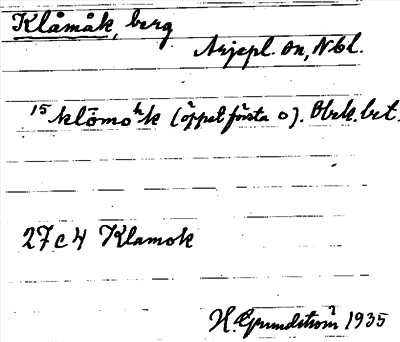 Klåmåk, berg
Arjepl. sn, Nbl.
15 klömoʰk (öppet första o). Obek. bet.
27c4 Klamok
H. Grundström 1935